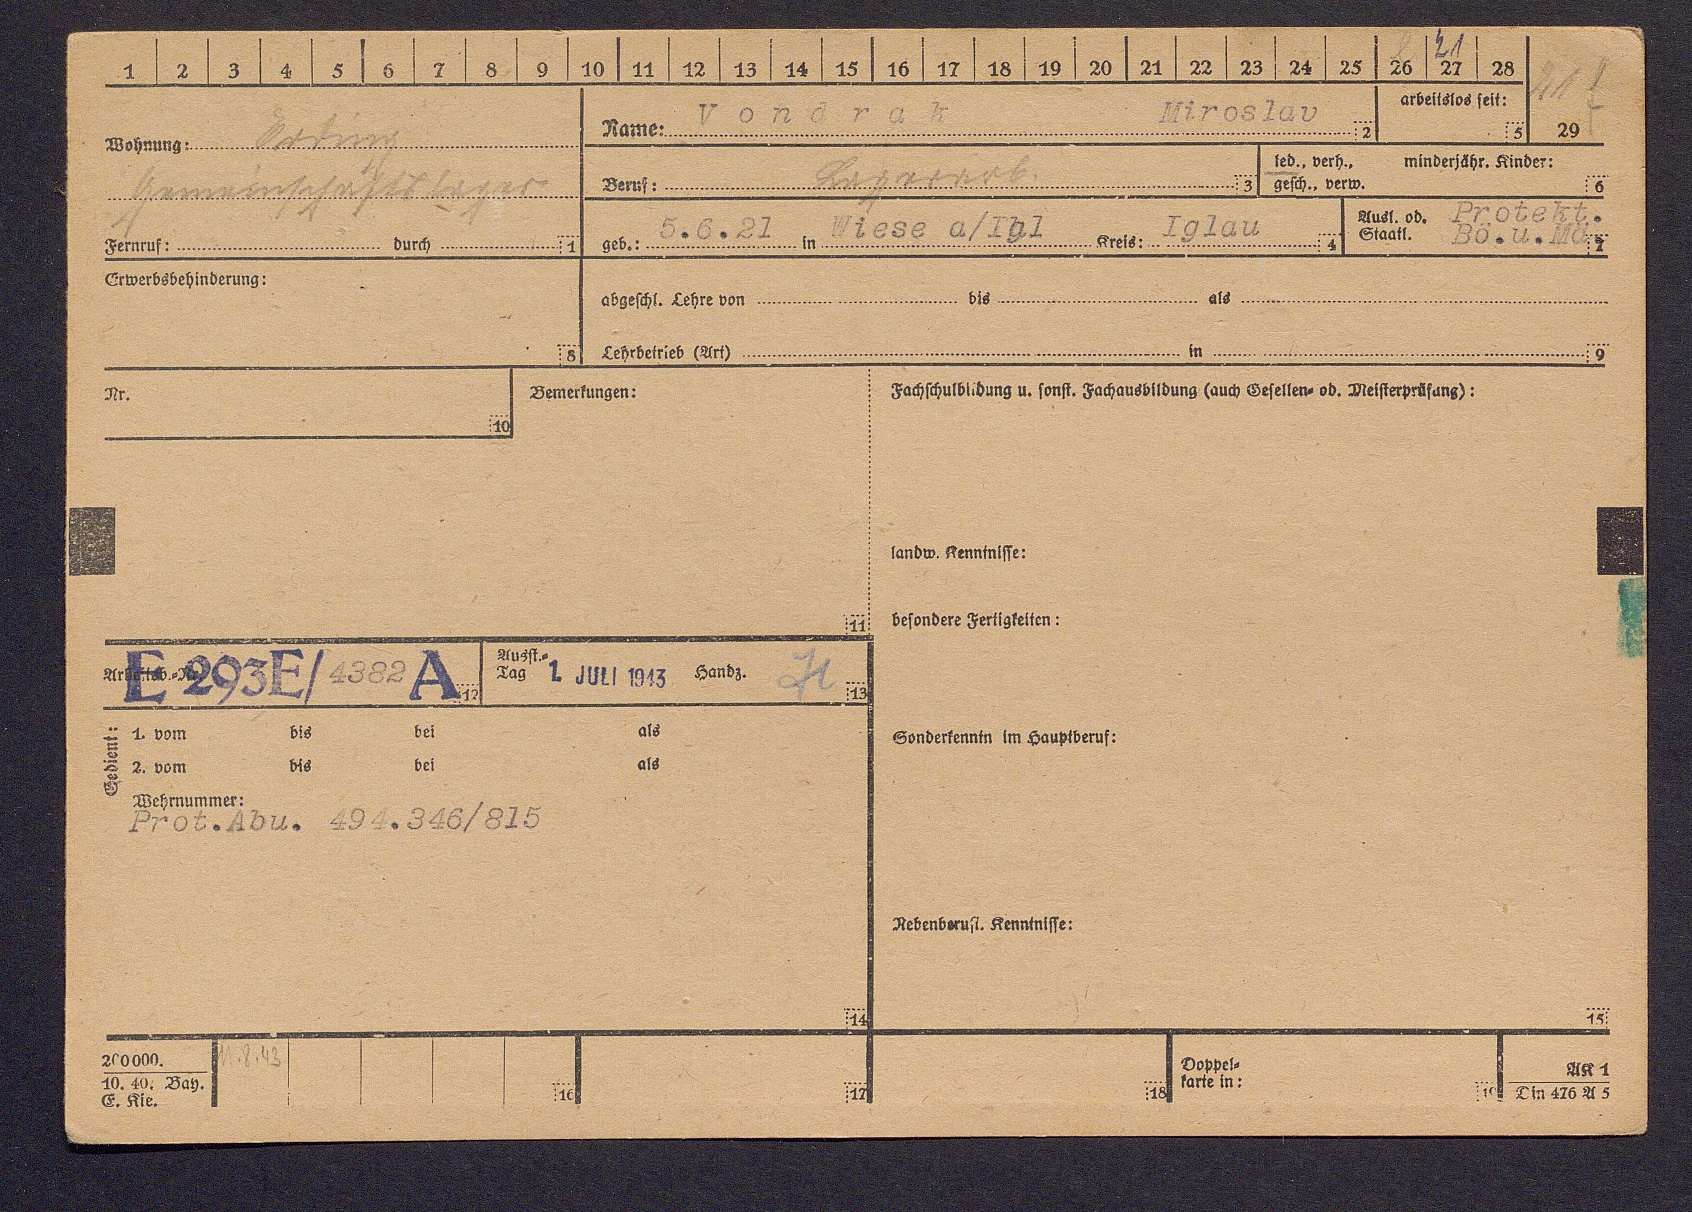 1 2 3 4 5 6 7 8 9 10 11 12 13 14 15 16 17 18 19 20 21 22 23 24 25 26 27 28 29
21
Wohnung: Erding
Gemeinschaftslager
Fernruf: durch 1
Name: Vondrak Miroslav 2
arbeitslos seit: 5
Beruf: Lagerarb. 3
led., verh., gesch., verw.
minderjähr. Kinder: 6
geb.: 5.6.21 in Wiese a/Igl Kreis: Iglau 4
Ausl. od. Staatl. Protekt. Bö.u.Mä 7
Erwerbsbehinderung: 8
abgeschl. Lehre von bis als
Lehrbetrieb (Art) in 9
Nr. 10
Bemerkungen: 11
Fachschulbildung u. sonst. Fachausbildung (auch Gesellen- od. Meisterprüfung):
landw. Kenntnisse:
besondere Fertigkeiten:
Arbeitsb.-Nr. E 293E/4382 A 12
Ausst.-Tag 1. JULI 1943 Handz. 13
Gedient:
1. vom bis bei als
2. vom bis bei als
Wehrnummer:
Prot.Abu. 494.346/815
14
Sonderkenntn im Hauptberuf:
Nebenberufl. Kenntnisse:
15
200000.
10. 40. Bay.
E. Kie.
11.8.43
16 17 18
Doppel-
karte in: 19
AK 1
Din 476 A 5